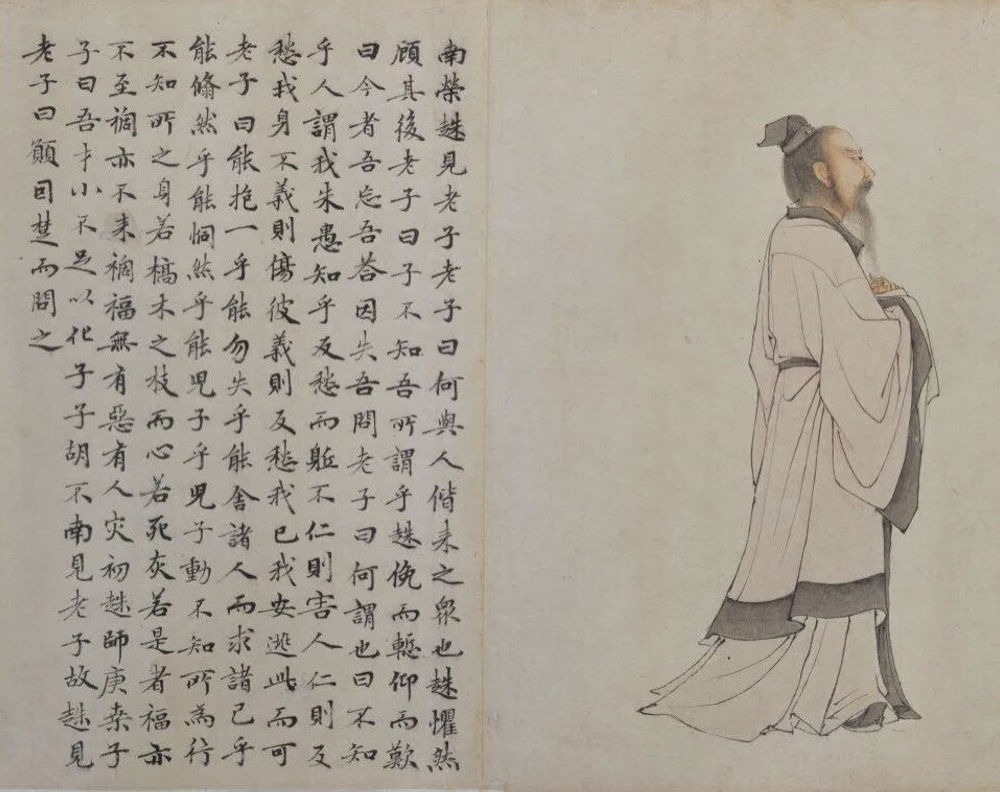 南榮趎見老子老子曰何與人偕来之眾也趎懼然
顧其後老子曰子不知吾所謂乎趎俛而慙仰而歎
曰今者吾忘吾荅因失吾問老子曰何謂也曰不知
乎人謂我朱愚知乎反愁而軀不仁則害人仁則反
愁我身不義則傷彼義則反愁我已我安逃此而可
老子曰能抱一乎能勿失乎能舍諸人而求諸已乎
能翛然乎能侗然乎能兒子乎兒子動不知所為行
不知所之身若槁木之枝而心若死灰若是者福亦
不至禍亦不来禍福無有惡有人灾初趎師庚桒子
子曰吾才小不足以化子子胡不南見老子故趎見
老子曰願囙楚而問之